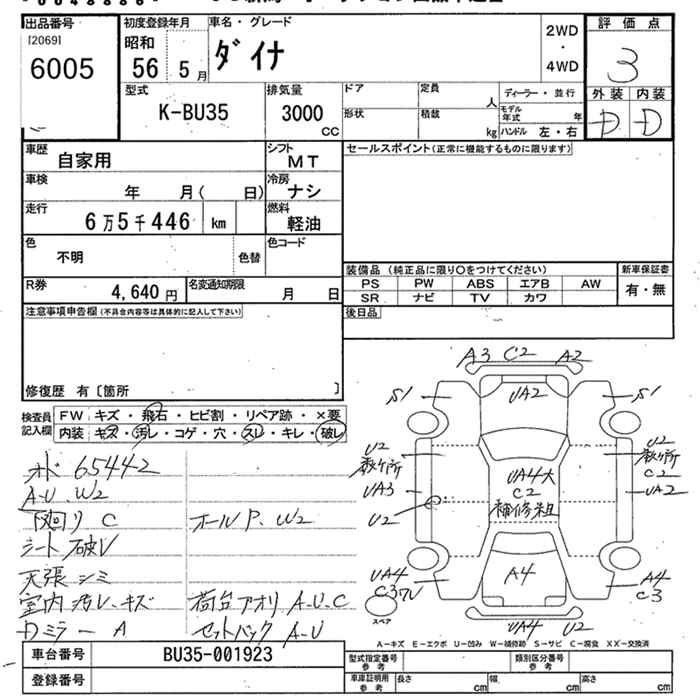 出品番号 初度登録年月 車名・グレード 評価点
[2069] 昭和 2WD
6005 56 5月 ダイナ ・ 3
4WD
型式 排気量 ドア 定員 ディーラー・並行 外装 内装
K-BU35 3000 人 モデル年式 年 D D
CC 形状 積載 kg ハンドル 左・右
車歴 自家用 シフト MT セールスポイント(正常に機能するものに限ります)
車検 年 月( 日) 冷房 ナシ
走行 6万5千446 km 燃料 軽油
色 不明 色替 色コード
装備品 (純正品に限り○をつけてください) 新車保証書
R券 4,640円 名変通知期限 月 日 PS PW ABS エアB AW 有・無
SR ナビ TV カワ
注意事項申告欄(不具合内容等は具体的に記入して下さい) 後日品
修復歴 有〔箇所 〕
検査員 記入欄 FW キズ・飛石・ヒビ割・リペア跡・×要
内装 キズ・汚レ・コゲ・穴・スレ・キレ・破レ
オド 65442
A-U W2
下廻り C ホールP. W2
シート破レ
天張シミ
室内汚レ、キズ 荷台アオリ A-U.C
Dミラー A セットバック A-U
A3 C2 A2
S1 UA2 S1
U2 数ヶ所 U2 数ヶ所
UA3 UA4大 C2 C2
U2 補修粗 UA2
UA4 A4 A4
C3 C3
スペア UA4 U2
A-キズ E-エクボ U-凹み W-補修跡 S-サビ C-腐食 XX-交換済
車台番号 BU35-001923 型式指定番号 参考 類別区分番号 参考
登録番号 車庫証明用 参考 長さ cm 幅 cm 高さ cm